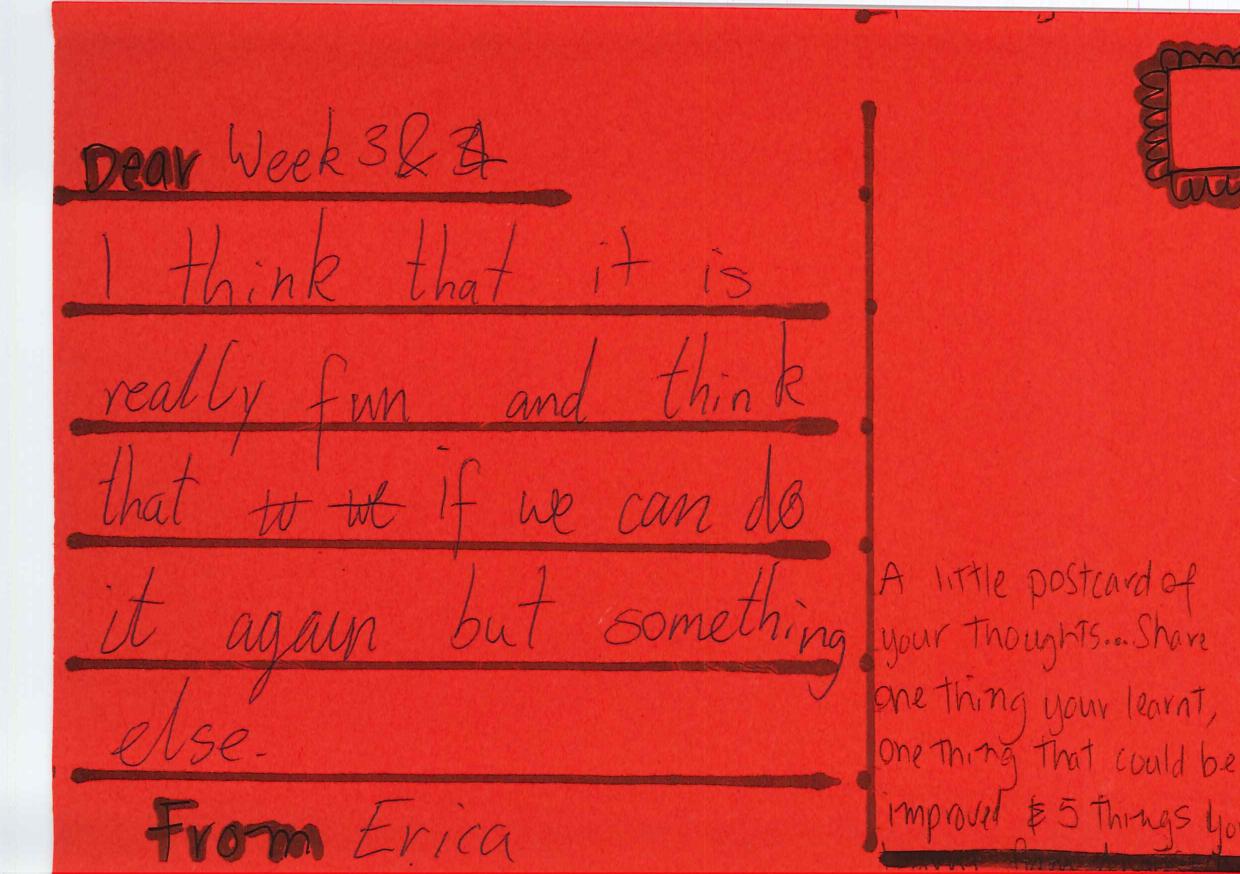 Dear Week 3 & 4
I think that it is
really fun and think
that if we can do
it again but something
else.
From Erica
A little postcard of
your thoughts... Share
one thing your learnt,
one thing that could be
improved & 5 things yo